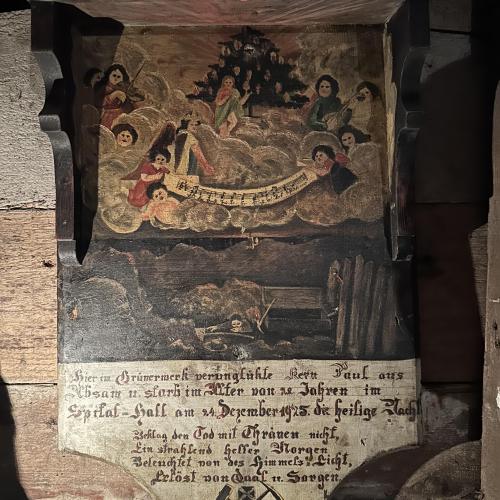 Hier im Grünerwerk verunglükte Kern Paul aus
Absam u. starb im Alter von Jahren im
Spital-Hall am 24. Dezember 1925. die heilige Nacht
Beklag den Tod mit Thränen nicht,
Ein strahlend heller Morgen
Beleuchtet von des Himmels Licht,
Erlöst von Qual u. Sorgen